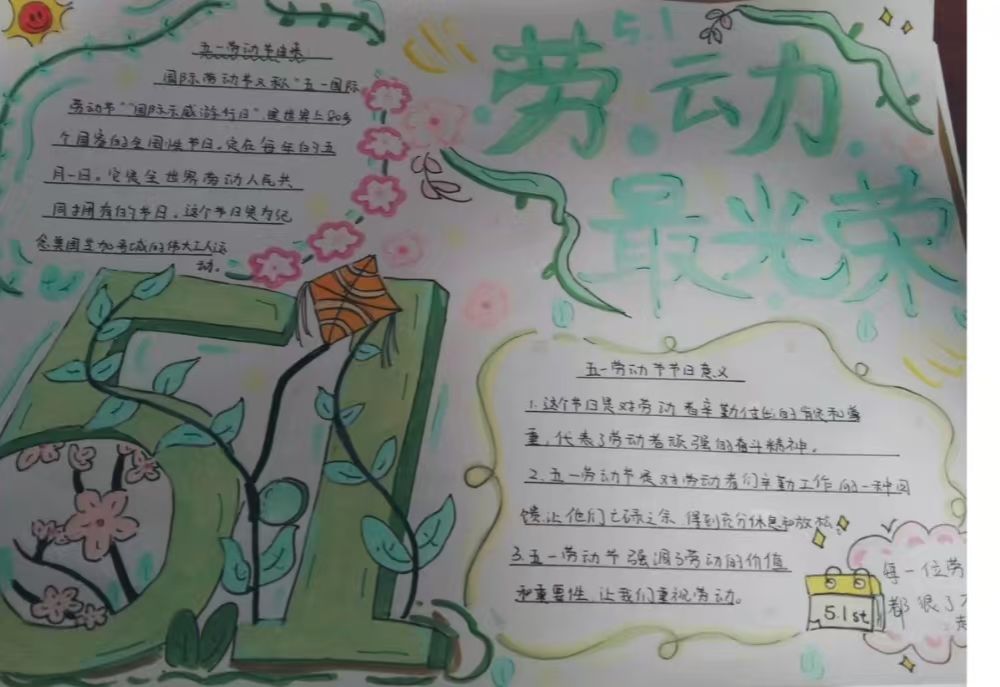 5.1
劳动
最光荣
五一劳动节由来
国际劳动节又称"五一国际
劳动节""国际示威游行日",是世界上80多
个国家的全国性节日。定在每年的五
月一日。它是全世界劳动人民共
同拥有的节日。这个节日是为纪
念美国芝加哥城的伟大工人运
动。
51
五一劳动节节日意义
1.这个节日是对劳动者辛勤付出的肯定和尊
重,代表了劳动者顽强的奋斗精神。
2.五一劳动节是对劳动者们辛勤工作的一种回
馈,让他们忙碌之余 得到充分休息和放松
3.五一劳动节强调了劳动的价值
和重要性,让我们重视劳动。
5.1st
每一位劳
都很了